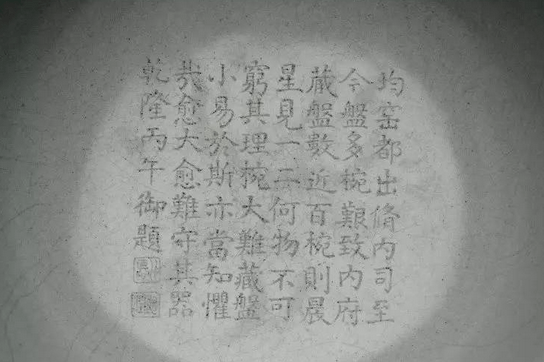 均窑都出脩內司至
今盤多椀艱致內府
藏盤數近百椀則晨
星見一二何物不可
窮其理椀大難藏盤
小易於斯亦當知懼
哉愈大愈難守其器
乾隆丙午御題